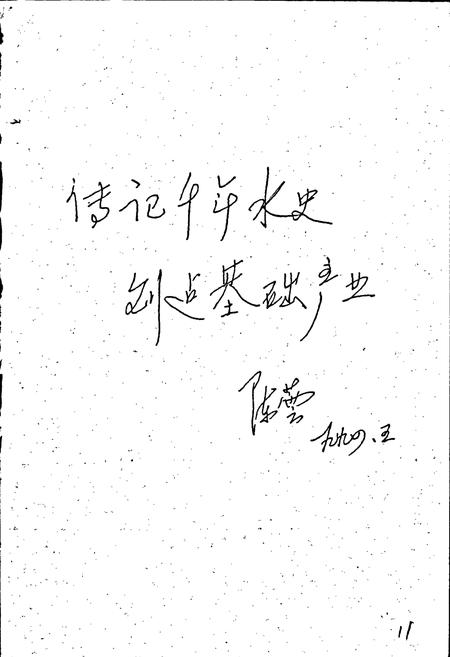 传记千年水史
创造基础产业
陈芸
九九〇.五
11